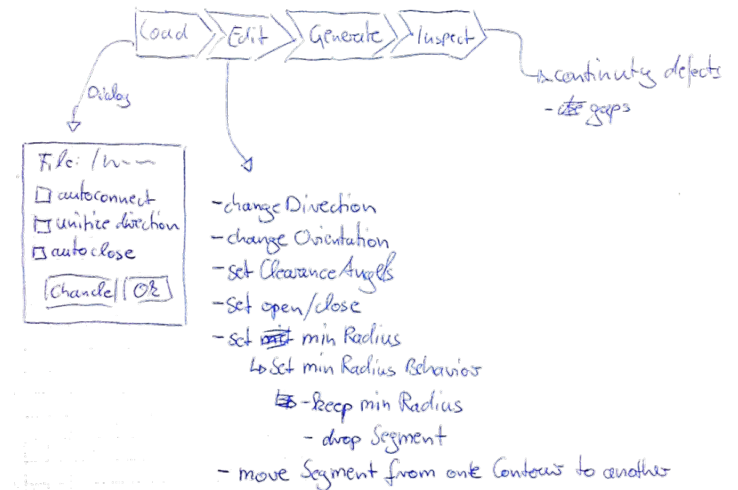 Load Edit Generate Inspect
Dialog
continuity defects
- gaps
File: /
autoconnect
unitize direction
autoclose
Chancle Ok
- change Direction
- change Orientation
- set Clearance Angels
- set open/close
- set min Radius
↳ Set min Radius Behavior
- keep min Radius
- drop Segment
- move Segment from one Contour to another